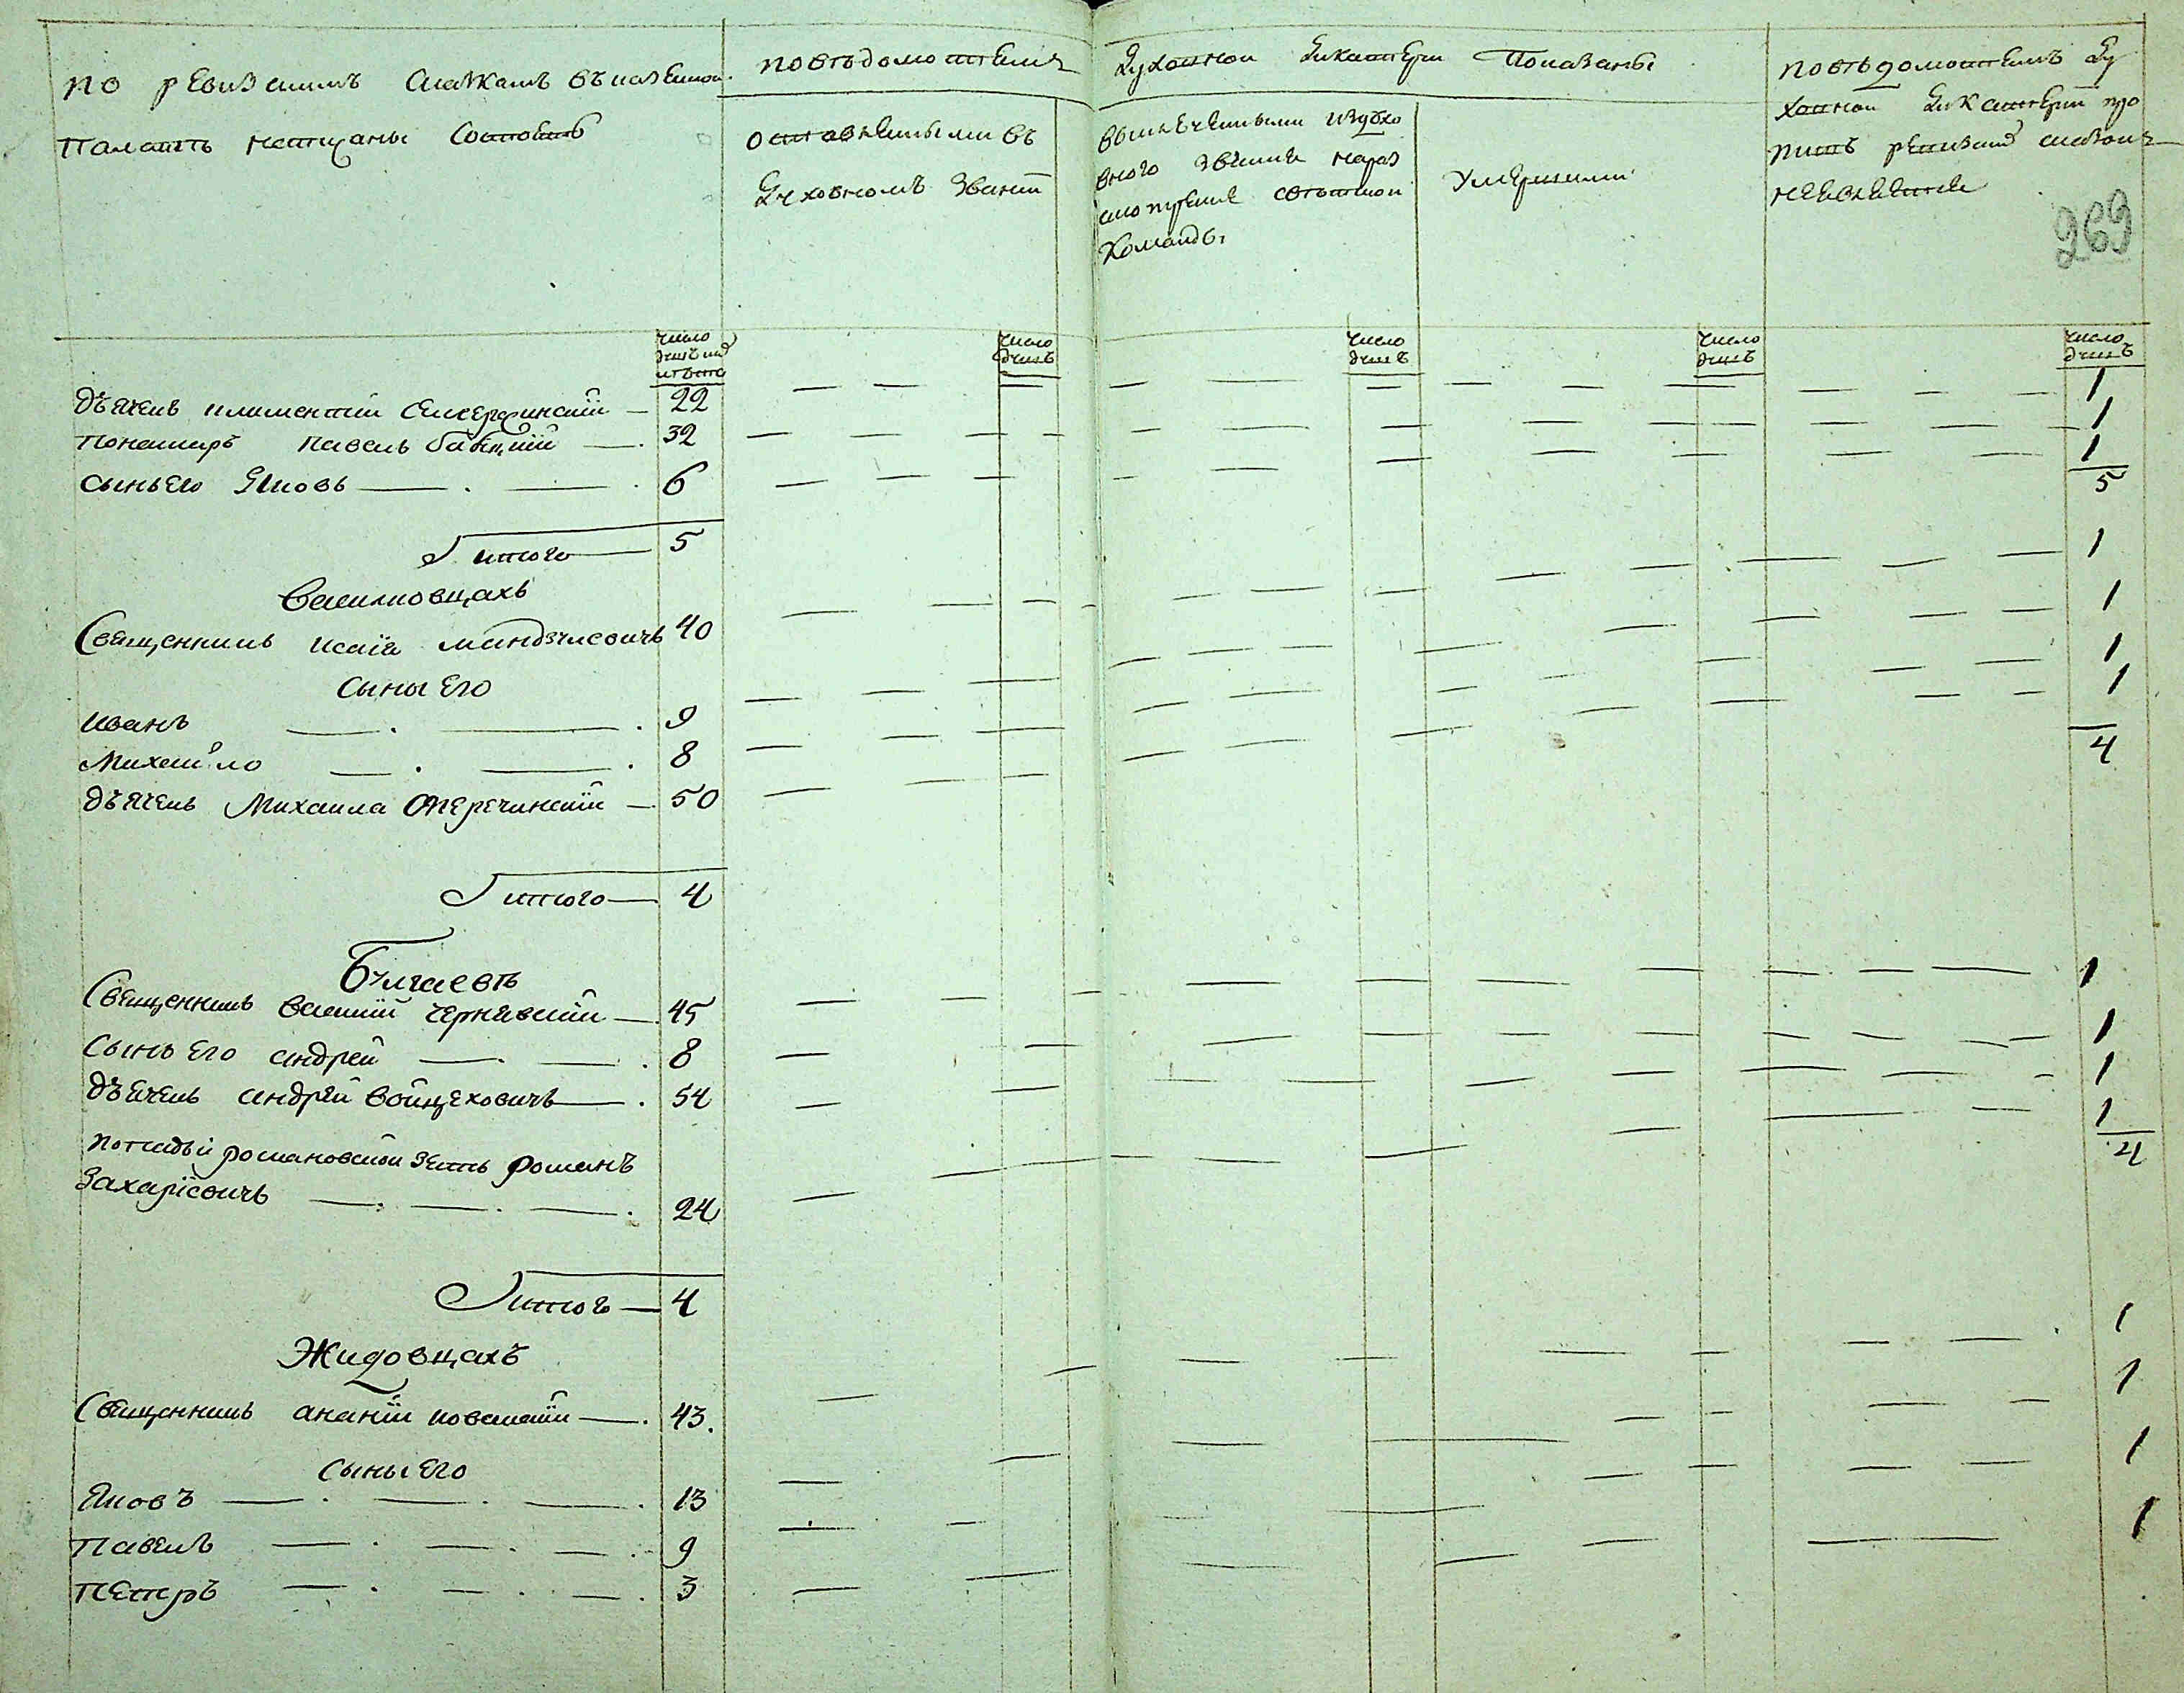 по ревизскимъ сказкамъ въ казенной
палатѣ написаны состоятъ
по вѣдомостямъ
Духовной Дикастеріи показаны
оставлеными въ
Духовномъ званіи
выключеными изъ духо
вного званія на раз
смотреніе свѣтской
команды
Умершими
по вѣдомостямъ Ду
ховной Дикастеріи про
тивъ ревизскихъ сказокъ
не явленныя
269
число душъ и лѣта
число душъ
число душъ
число душъ
число душъ
дьячекъ климентій — 22 — 1
пономаръ павелъ — 32 — 1
сынъ его Яковъ — 6 — 1
5
Итого — 5
Василковцахъ
Священникъ исаія мандзулевичъ 40 — 1
сыны его
иванъ — 9 — 1
Михайло — 8 — 1
дьячекъ Михаила — 50 — 1
4
Итого — 4
Булаевѣ
Священникъ василій чернявскій — 45 — 1
сынъ его андрей — 8 — 1
дьячекъ андрей войцеховичъ — 54 — 1
попадьи романовской зять романъ
Захаріевичъ — 24 — 1
4
Итого — 4
Жидовцахъ
Священникъ ананій ковалскій — 43. — 1
сыны его
Яковъ — 13 — 1
павелъ — 9 — 1
петръ — 3 — 1